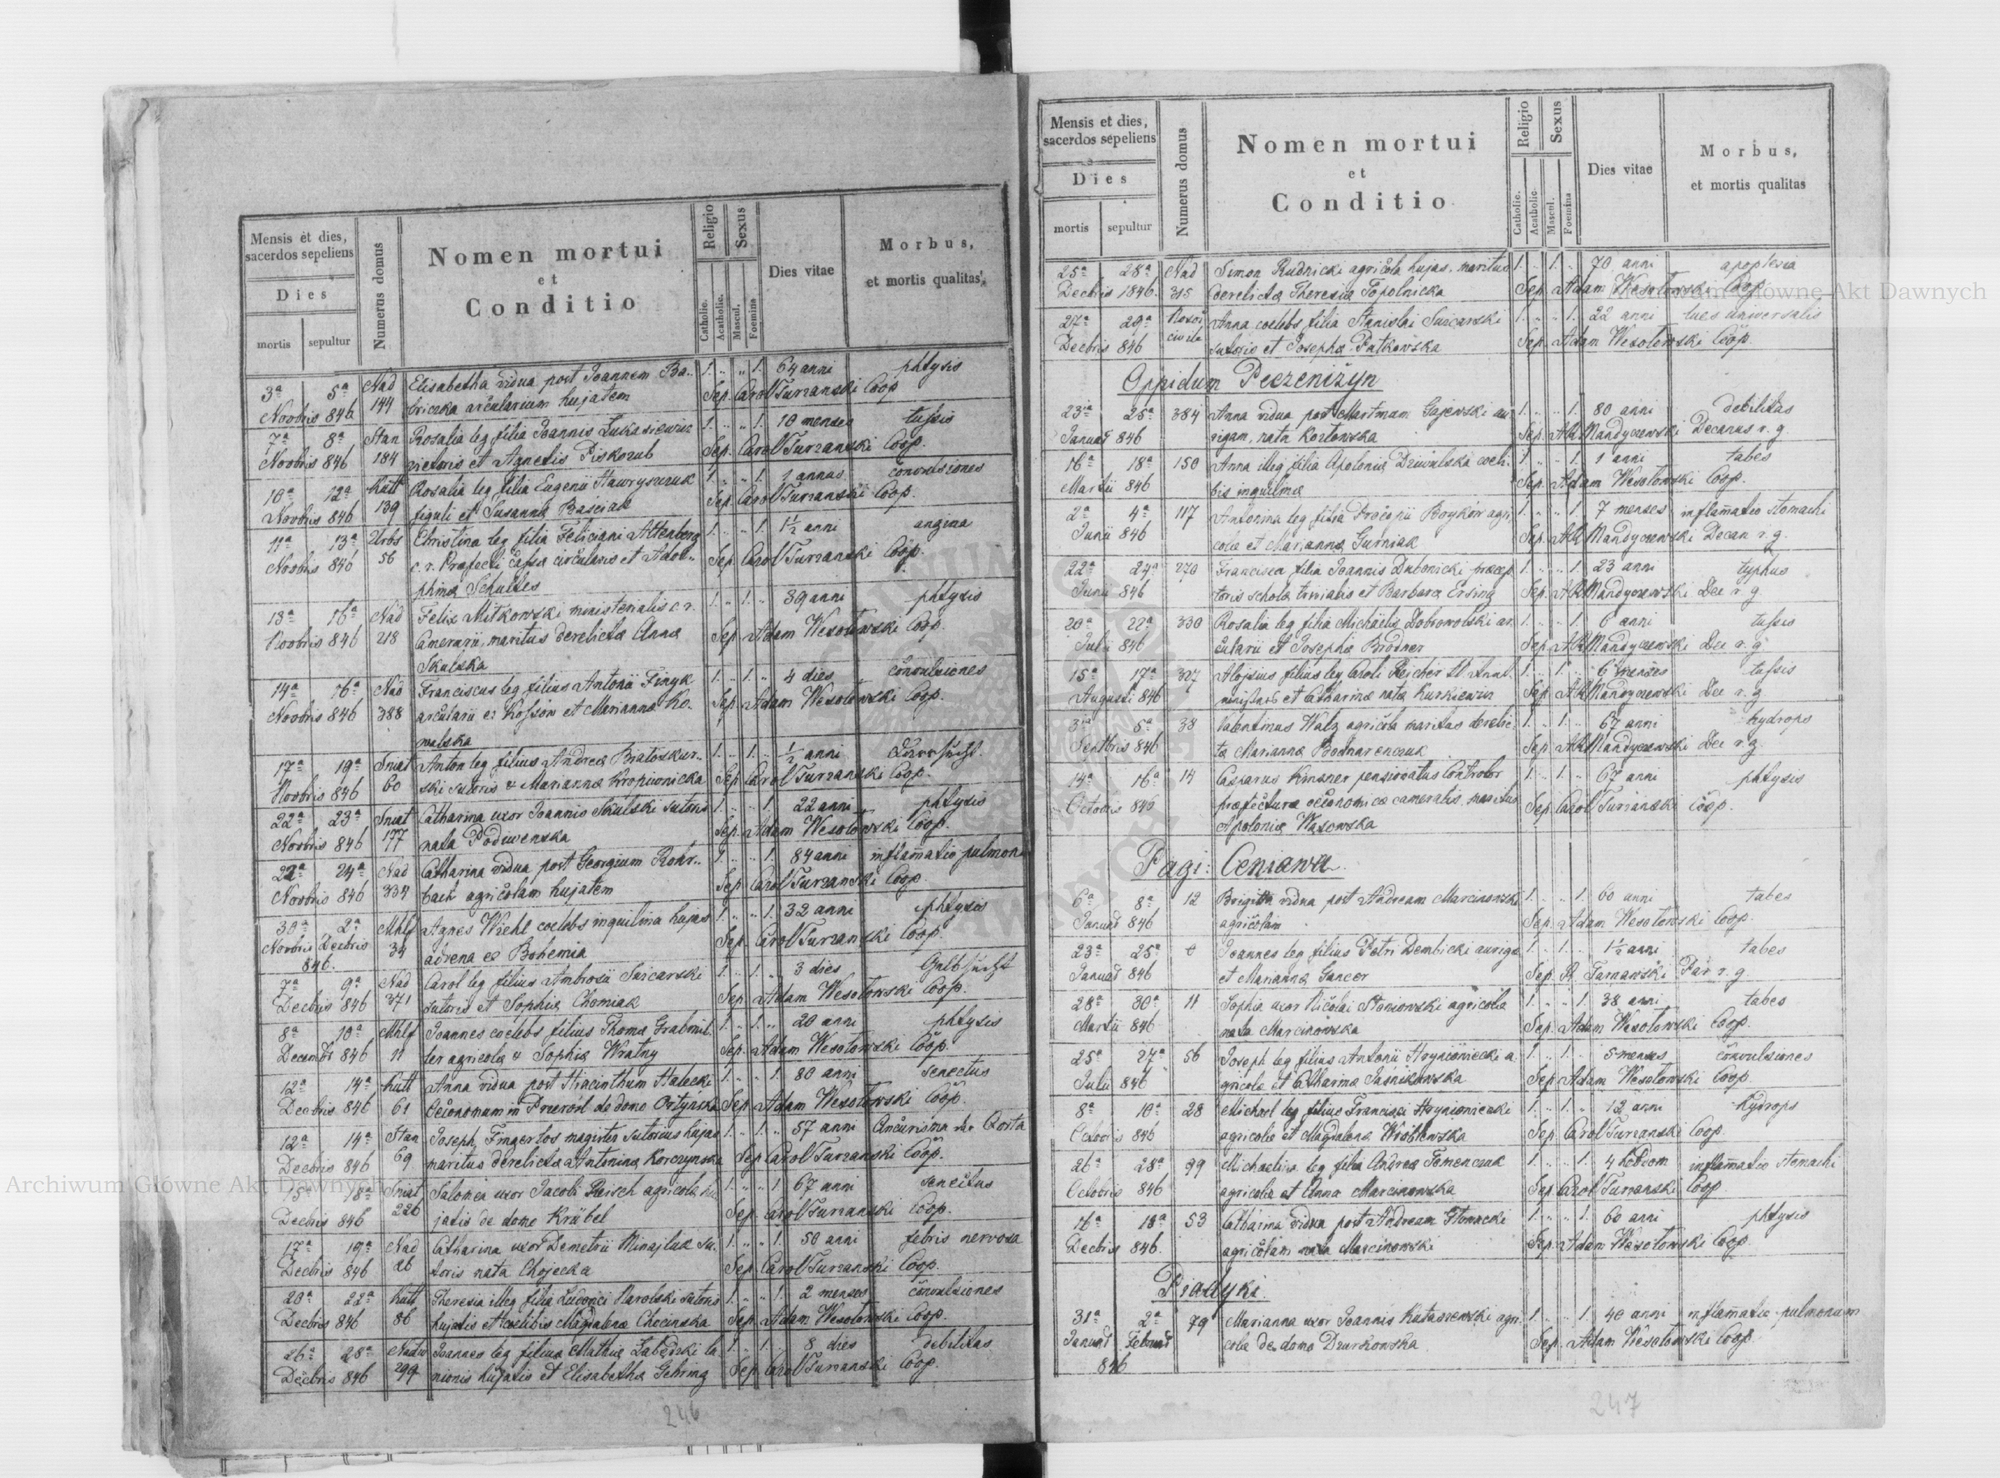 Mensis et dies,
sacerdos sepeliens
Dies
mortis sepultur
Numerus domus
Nomen mortui
et
Conditio
Religio
Catholic.
Acatholic.
Sexus
Mascul.
Foemina
Dies vitae
Morbus,
et mortis qualitas
3ª 5ª Nad Elisabetha vidua post Joannem Ba- 1. „ „ 1. 64 anni phtysis
Novbris 846 144 briczka arcularium hujatem Sep. Carol Turzanski Coop
7ª 8ª Stan Rosalia leg filia Joannis Lukasiewicz 1. „ „ 1. 10 menses tussis
Novbris 846 184 pictoris et Agnetis Piskozub Sep. Carol Turzanski Coop.
10ª 12ª Kutt Rosalia leg filia Eugenii Hawryszczuk 1. „ „ 1. 1 annus convulsiones
Novbris 846 139 figuli et Susanna Baściak Sep. Carol Turzanski Coop.
11ª 13ª Urbs Christina leg filia Feliciani Altenberg 1. „ „ 1. 1½ anni angina
Novbris 846 56 c. r. Praefecti Cassa circularis et Adol- Sep. Carol Turzanski Coop.
phina Schultes
13ª 16ª Nad Felix Mitkowski ministerialis c. r. 1. „ 1. „ 39 anni phtysis
Novbris 846 218 Camerarii, maritus derelicta Anna Sep. Adam Wesołowski Coop.
Skulska
14ª 16ª Nad Franciscus leg filius Antonii Finyk 1. „ 1. „ 4 dies convulsiones
Novbris 846 388 arcularii ex Kossow et Marianna Ko- Sep. Adam Wesołowski Coop.
walska
17ª 19ª Sniat Anton leg filius Andrea Bratoskur- 1. „ 1. „ ½ anni
Novbris 846 60 ski sutoris & Marianna Kropiwnicka Sep. Carol Turzanski Coop.
22ª 23ª Sniat Catharina uxor Joannis Skulski sutoris 1. „ „ 1. 22 anni phtysis
Novbris 846 177 nata Podiwenska Sep. Adam Wesołowski Coop.
22ª 24ª Nad Catharina vidua post Georgium Rohr- 1. „ „ 1. 84 anni inflamatio pulmon
Novbris 846 334 bach agricolam hujatem Sep. Carol Turzanski Coop.
30ª 2ª Mhlf Agnes Wiehl coelebs inquilina hujas 1. „ „ 1. 32 anni phtysis
Novbris Decbris 34 advena ex Bohemia Sep. Carol Turzanski Coop.
846.
7ª 9ª Nad Carol leg filius Ambrosii Suicarski 1. „ 1. „ 3 dies Gelbsucht
Decbris 846 371 sutoris et Sophia Chomiak Sep. Adam Wesołowski Coop.
8ª 10ª Mhlf Joannes coelebs filius Thoma Grabmil- 1. „ 1. „ 20 anni phtysis
Decembr 846 11 ler agricola & Sophia Wratny Sep. Adam Wesołowski Coop.
12ª 14ª Kutt Anna vidua post Hiacinthum Halecki 1. „ „ 1. 80 anni senectus
Decbris 846 61 Oeconomum in Przerośl de domo Ortynska Sep. Adam Wesołowski Coop.
12ª 14ª Stan Joseph Fingerlos magister sutorius hujas 1. „ 1. „ 57 anni
Decbris 846 69 maritus derelicta Antonina Korczynska Sep. Carol Turzanski Coop.
15ª 18ª Sniat Salomea uxor Jacobi Reisch agricola hu 1. „ „ 1. 67 anni senectus
Decbris 846 226 jatis de domo Krübel Sep. Carol Turzanski Coop.
17ª 19ª Nad Catharina uxor Demetrii Minajluk su- 1. „ „ 1. 50 anni febris nervosa
Decbris 846 26 toris nata Chojecka Sep. Carol Turzanski Coop.
20ª 22ª Kutt Theresia illeg filia Ludovici Karolski sutoris 1. „ „ 1. 2 menses convulsiones
Decbris 846 86 hujatis et coelibis Magdalena Chocinska Sep. Adam Wesołowski Coop.
26ª 28ª Joannes leg filius Mathia Zabędzki la 1. „ 1. „ 8 dies debilitas
Decbris 846 299 nionis hujatis et Elisabetha Gehring Sep. Carol Turzanski Coop.
246
Mensis et dies,
sacerdos sepeliens
Dies
mortis sepultur
Numerus domus
Nomen mortui
et
Conditio
Religio
Catholic.
Acatholic.
Sexus
Mascul.
Foemina
Dies vitae
Morbus,
et mortis qualitas
25ª 28ª Nad Simon Rudnicki agricola hujas. maritus 1. „ 1. „ 70 anni apoplexia
Decbris 1846. 315 derelicta Theresia Topolnicka Sep. Adam Wesołowski Coop.
27ª 29ª Anna coelebs filia Stanislai Suicarski 1. „ „ 1. 22 anni lues universalis
Decbris 846 civile sutoris et Josepha Patkowska Sep. Adam Wesołowski Coop.
Oppidum Peczeniżyn
23ª 25ª 384 Anna vidua post Martinum Gajewski au- 1. „ „ 1. 80 anni debilitas
Januar 846 rigam, nata Kozlowska Sep. Mandyczewski Decanus r. g.
16ª 18ª 150 Anna illeg filia Apolonia Dziwulska coeli- 1. „ „ 1. 1 anni tabes
Martii 846 bis inquilina Sep. Adam Wesołowski Coop.
2ª 4ª 117 Antonina leg filia Procopii Boykow agri- 1. „ „ 1. 7 menses inflamatio stomachi
Junii 846 cola et Marianna Gurniak Sep. Mandyczewski Decan r. g.
22ª 24ª 270 Francisca filia Joannis Dubonicki praecep 1. „ „ 1. 23 anni typhus
Junii 846 toris schola trivialis et Barbara Ersing Sep. Mandyczewski Dec r. g.
20ª 22ª 330 Rosalia leg filia Michaelis Dobrowolski ar 1. „ „ 1. 6 anni tussis
Julii 846 cularii et Josepha Brodner Sep. Mandyczewski Dec r. g.
15ª 17ª 327 Aloisius filius leg Caroli Reicher 1. „ 1. „ 6 menses tussis
Augusti 846 et Catharina nata Kurkiewicz Sep. Mandyczewski Dec r. g.
3ª 5ª 38 Valentinus Walz agricola maritus derelic- 1. „ 1. „ 67 anni hydrops
Septbris 846 ta Marianna Bodnarenczuk Sep. Mandyczewski Dec r. g.
14ª 16ª 14 Casparus Kinzner pensionatus Controlor 1. „ 1. „ 67 anni phtysis
Octobris 846 praefectura oeconomica cameralis, maritus Sep. Carol Turzanski Coop.
Apolonia Wasowska
Pagi: Ceniawa.
6ª 8ª 12 Brigitta vidua post Andream Marcinowski 1. „ „ 1. 60 anni tabes
Januar 846 agricolam Sep. Adam Wesołowski Coop.
23ª 25ª Joannes leg filius Petri Dembicki auriga 1. „ 1. „ 1½ anni tabes
Januar 846 et Marianna Gancer Sep. Tarnawski Par r. g.
28ª 30ª 11 Sophia uxor Nicolai Stoniowski agricola 1. „ „ 1. 38 anni tabes
Martii 846 nata Marcinowska Sep. Adam Wesołowski Coop.
25ª 27ª 56 Joseph leg filius Antonii Hryniowiecki a. 1. „ 1. „ 5 menses convulsiones
Julii 846 gricola et Catharina Jasnikowska Sep. Adam Wesołowski Coop.
8ª 10ª 28 Michael leg filius Francisci Hryniowiecki 1. „ 1. „ 12 anni hydrops
Octobris 846 agricola et Magdalena Wroblewska Sep. Carol Turzanski Coop.
26ª 28ª 99 Michaelina leg filia Andrea Tomenczuk 1. „ „ 1. 4 inflamatio stomachi
Octobris 846 agricola et Anna Marcinowska Sep. Carol Turzanski Coop.
16ª 18ª 53 Catharina vidua post Andream Stowacki 1. „ „ 1. 60 anni phtysis
Decbris 846. agricolam nata Marcinowski Sep. Adam Wesołowski Coop.
Piadyki.
31ª 2ª 79 Marianna uxor Joannis Kutaszewski agri- 1. „ „ 1. 40 anni inflamatio pulmonum
Januar Februar cola de domo Dzurkowska Sep. Adam Wesołowski Coop.
846
247
Archiwum Główne Akt Dawnych
Archiwum Główne Akt Dawnych